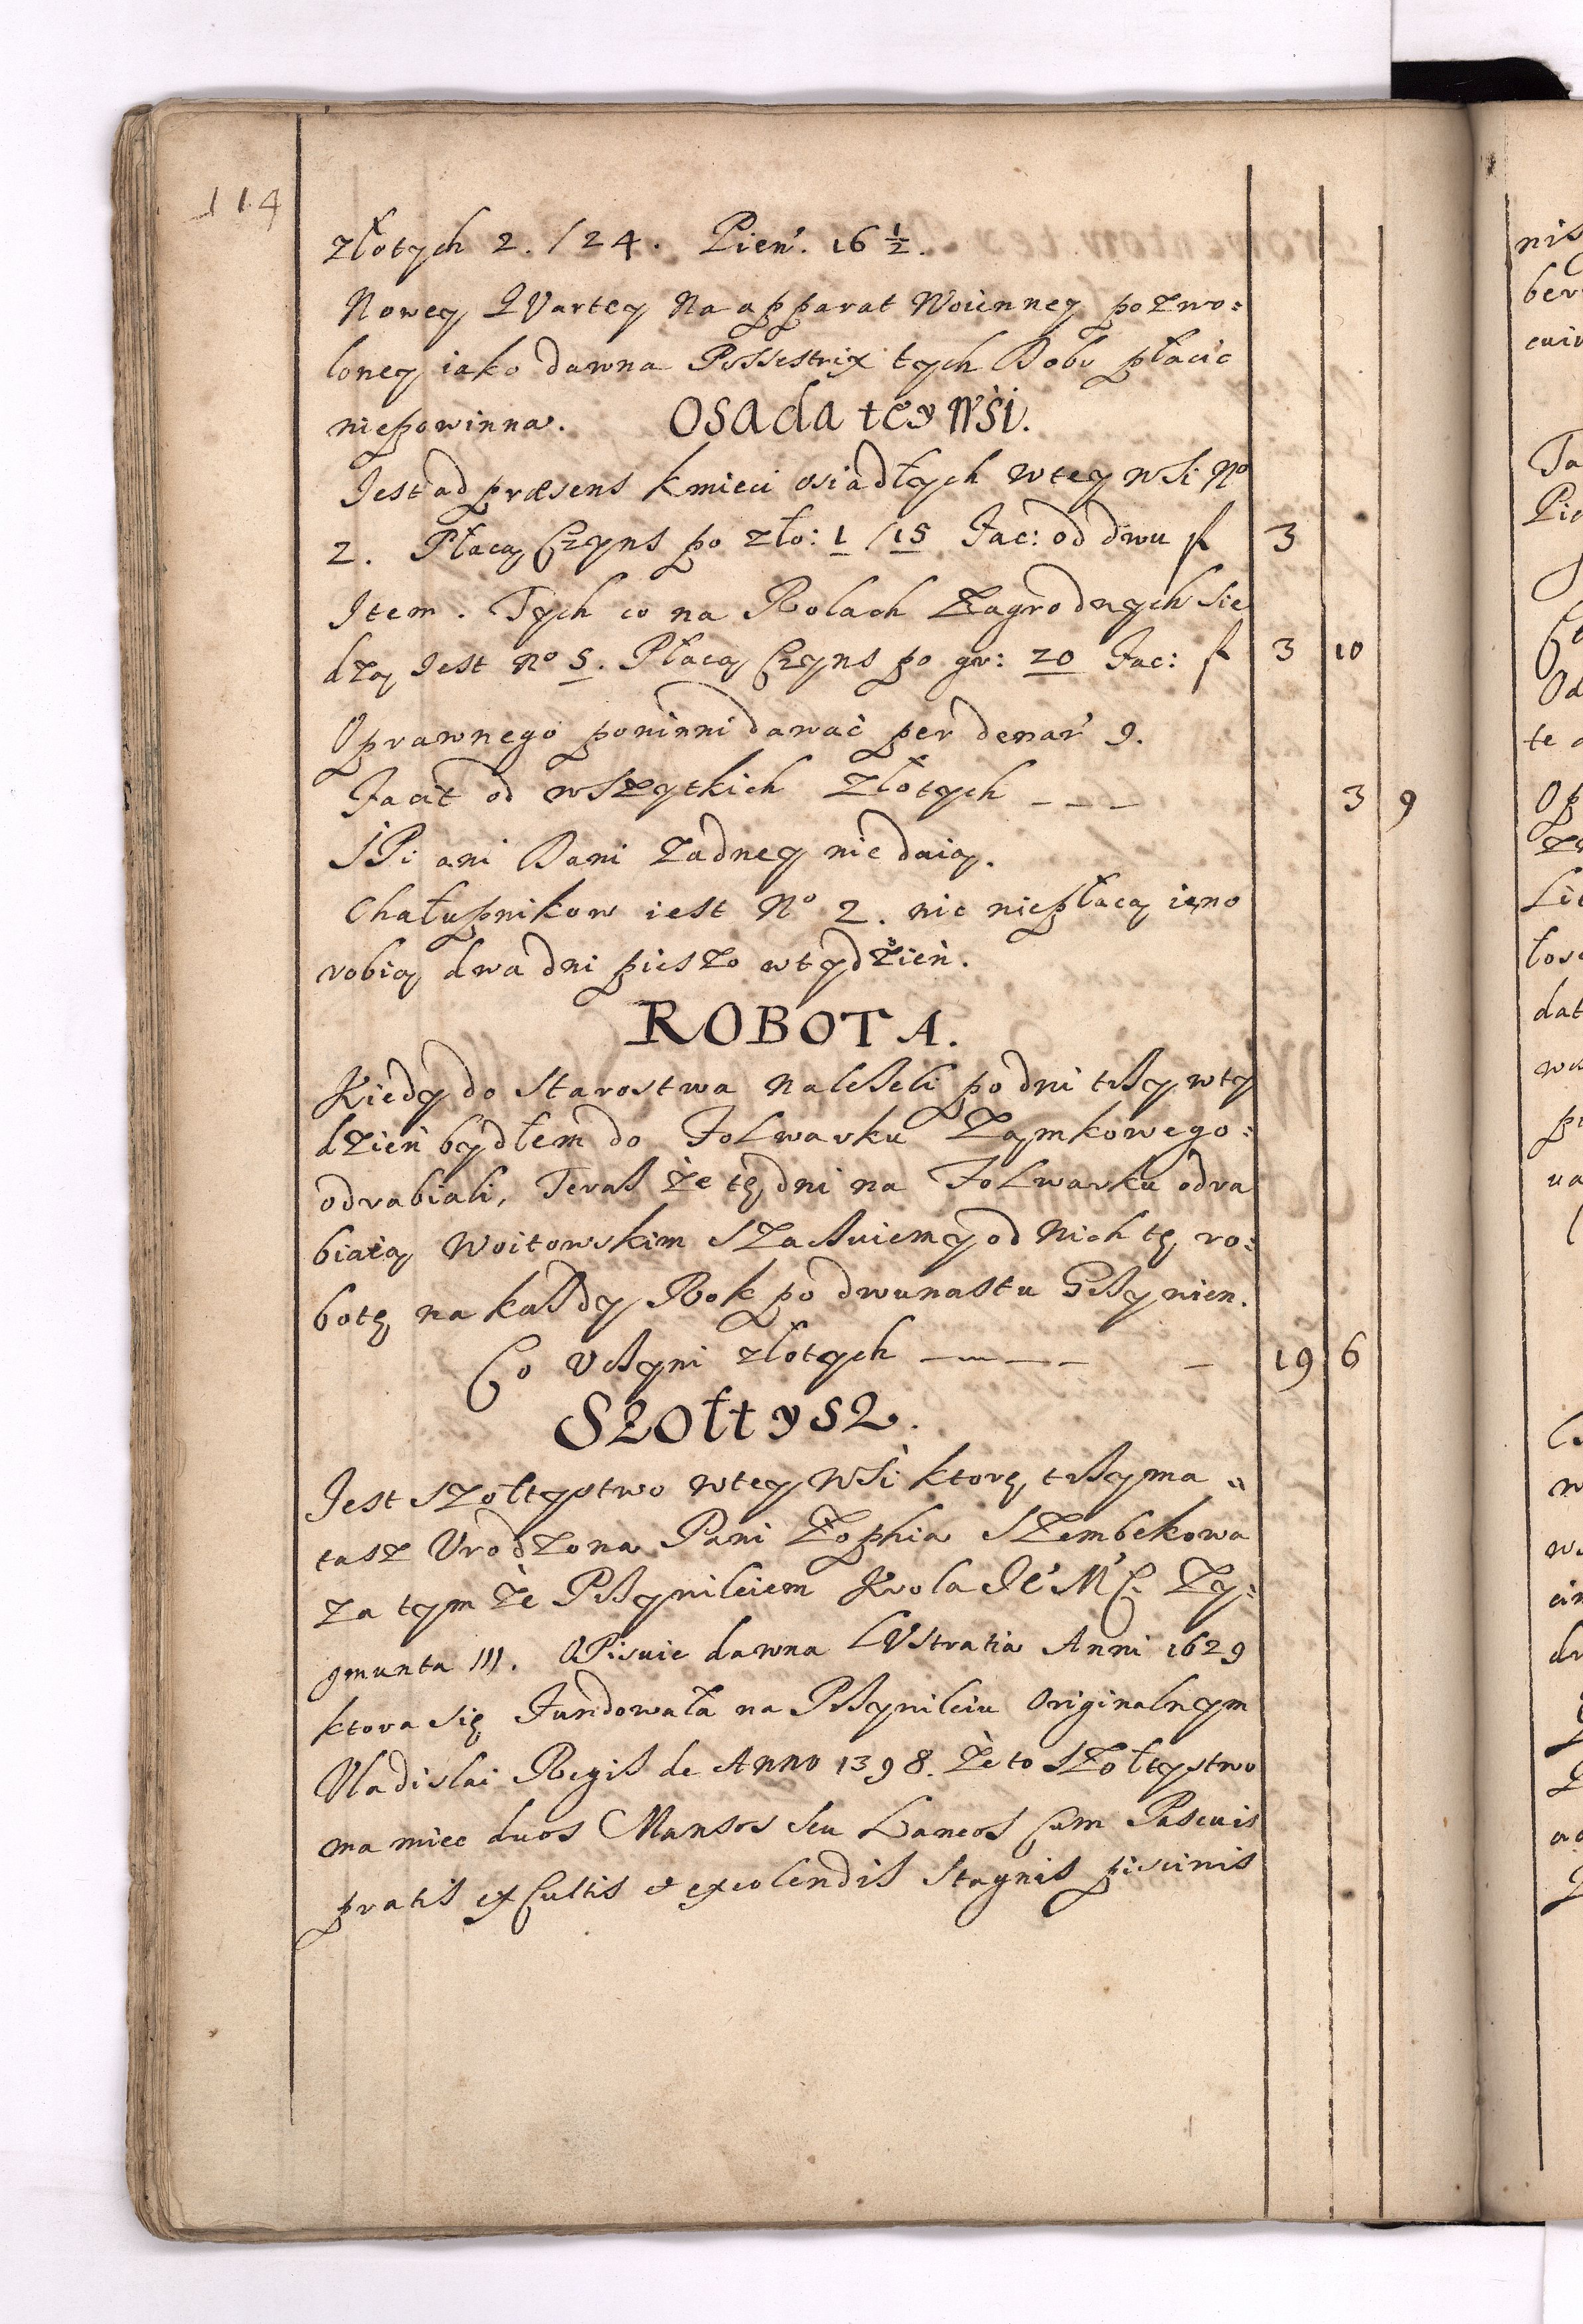 114
złotych 2. /24. Pień. 16 ½.
Nowey QVartey Na apparat Woienney pozwo=
loney iako dawna Possestrix tych Dobr płacic
niepowinna. Osada tey Wśi.
Jest ad præsens kmieci osiadłych wtey wsi No
2. Płacą Czyns po zło: 1 /15 Fac: od dwu f 3
Item. Tych co na Rolach Zagrodnych Sie
dzą Jest No 5. Płacą Czyns po gr: 20 Fac: f 3 10
Oprawnego powinni dawać per denar 9.
Facit od wszytkich Złotych _ _ _ 3 9
SPi ani Dani Zadney nie daią.
Chałupnikow iest No 2. nic niepłacą ieno
robią dwa dni pieszo wtydzień.
ROBOTA.
Kiedy do Starostwa naleßeli po dni trßy wty
dzień bydłem do Folwarku Zamkowego=
odrabiali, Teraß że tę dni na Folwarku odra
biaią Woitowskim Szaßuiemy od Nich tę ro=
botę na kaßdy Rok po dwunastu Grßywien.
Co Vcßyni złotych _ _ _ _ _ 19 6
Szołtysz.
Jest Szołtystwo wtey Wśi: ktorę trßyma
tasz Vrodzona Pani Zophia Szembekowa
za tym że Prßywileiem Krola Je° M°C. Zy=
gmunta III. OPisuie dawna LVstratia Anni 1629
ktora się Fundowała na Prßywileiu Originalnym
Vladislai Regis de Anno 1398. że to Szołtystwo
ma miec duos Mansos seu Laneos Cum Pascuis
pratis exCultis et excolendis Stagnis piscinis